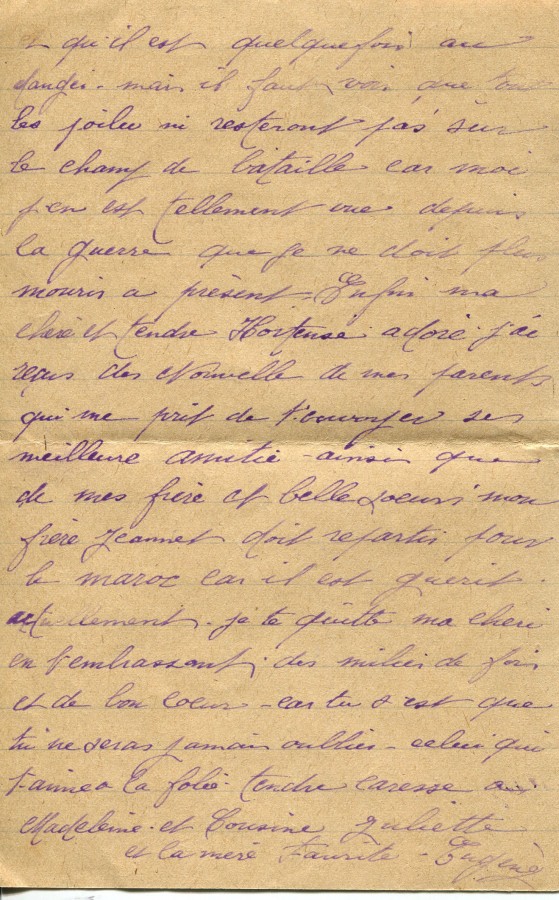 et qu'il est quelquefois au
danger - mais il faut voir que tous
les poilu ni resteront pas sur
le champ de bataille car moi
j'en est tellement vue depuis
la guerre que je ne doit plus
mourir a présent - Enfin ma
chère et tendre Hortense adoré j'ai
reçus des Nouvelle de mes parents
qui me prit de t'envoyer ses
meilleure amitié - ainsi que
de mes frère et belle soeurs mon
frère Jeannet doit repartir pour
le maroc car il est guerit
actuellement - je te quitte ma cheri
en t'embrassant des milier de fois
et de bon coeur - car tu s'est que
tu ne seras jamais oublier - celui qui
t'aime a la folie - tendre caresse a
Madeleine - et Cousine Juliette
et la mère Faurite - Eugène